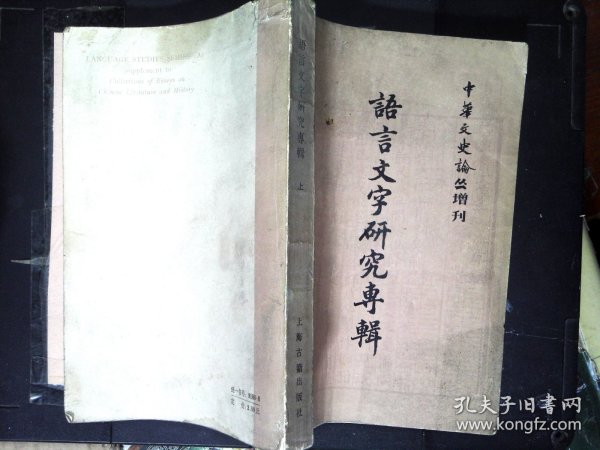 中華文史論丛增刊
語言文字研究專輯
語言文字研究專輯 上
上海古籍出版社
LANGUAGE STUDIES
Supplement to
Collections of Essays on
Chinese Literature and History
孔夫子旧书网
kongfz.com